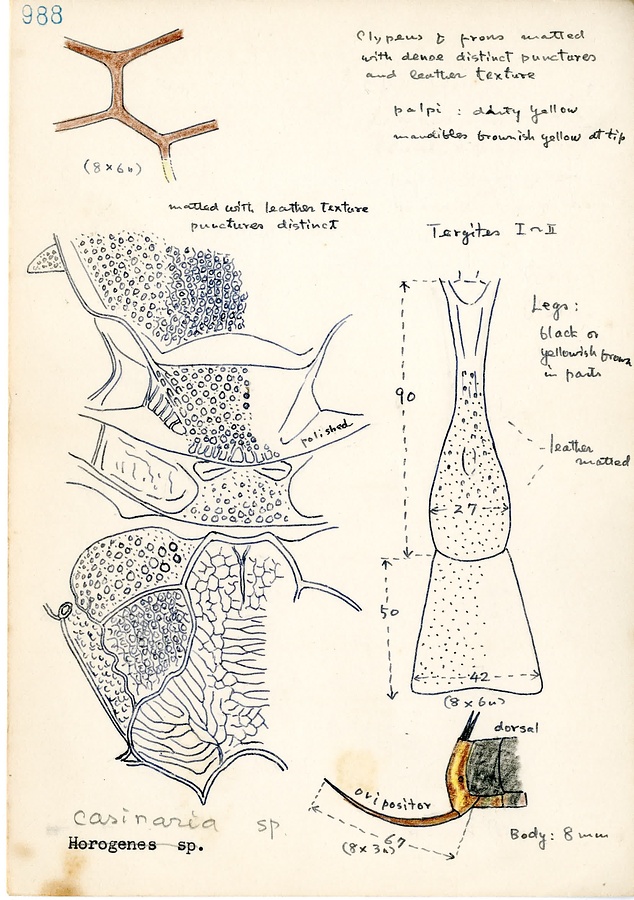 988
Clypeus & frons matted
with dense distinct punctures
and leather texture
palpi : dirty yellow
mandibles brownish yellow at tip
(8×6n)
matted with leather texture
punctures distinct
Tergites I~II
Legs:
black or
yellowish brown
in parts
90
polished
leather
matted
27
50
42
(8×6n)
dorsal
ovipositor
67
(8×3n)
Body: 8mm
Casinaria sp.
Horogenes sp.